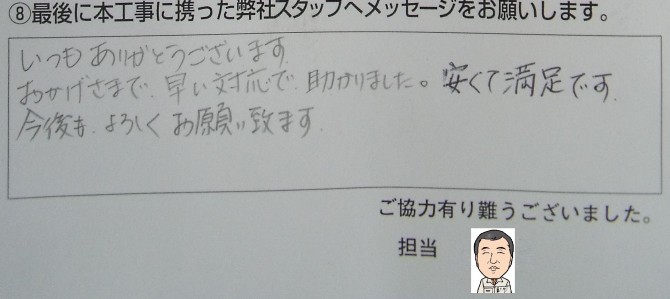 ⑧最後に本工事に携った弊社スタッフへメッセージをお願いします。
いつもありがとうございます
おかげさまで、早い対応で、助かりました。安くて満足です.
今後も、よろしくお願い致ます.
ご協力有り難うございました。
担当